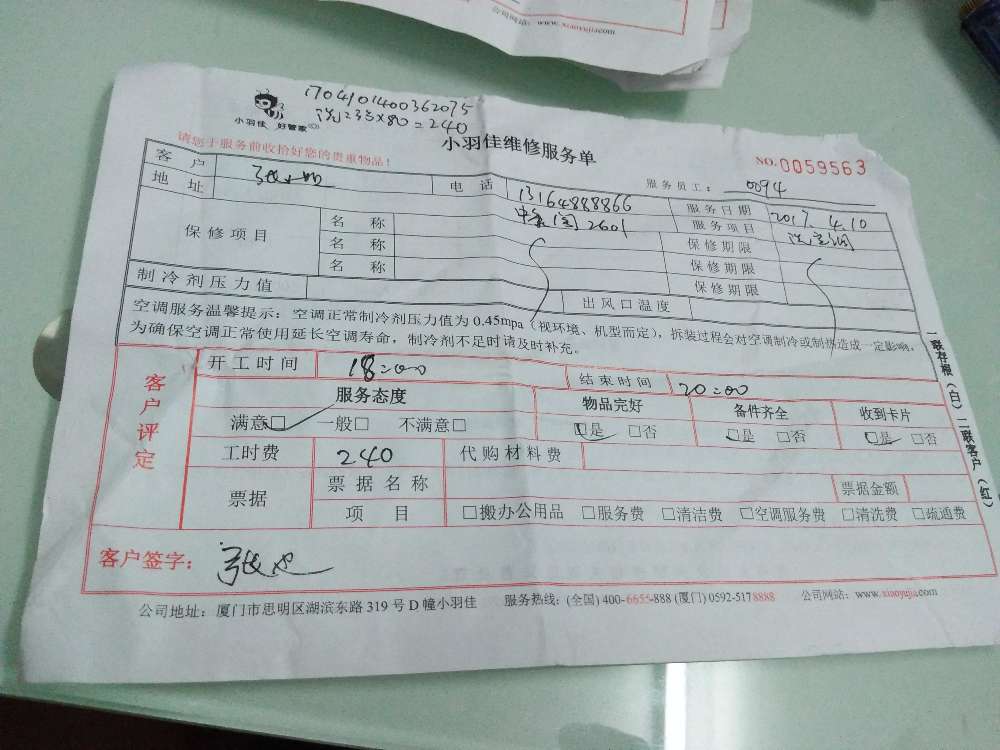 公司网站：www.xiaoyujia.com
1704101400362075
洗233×80=240
小羽佳 好管家
小羽佳维修服务单
请您于服务前收拾好您的贵重物品！
服务员工： 0094
NO.0059563
客 户 张小姐 电 话 13164888866 服务日期 2017.4.10
地 址 2601 服务项目 洗空调
保修项目 名 称 保修期限
名 称 保修期限
名 称 保修期限
制冷剂压力值 出风口温度
空调服务温馨提示：空调正常制冷剂压力值为 0.45mpa（视环境、机型而定），拆装过程会对空调制冷或制热造成一定影响，
为确保空调正常使用延长空调寿命，制冷剂不足时请及时补充。
客户评定
开工时间 18:00 结束时间 20:00
服务态度 物品完好 备件齐全 收到卡片
满意□ 一般□ 不满意□ □是 □否 □是 □否 □是 □否
工时费 240 代购材料费
票据 票 据 名 称 票据金额
项 目 □搬办公用品 □服务费 □清洁费 □空调服务费 □清洗费 □疏通费
客户签字：
一联存根（白）二联客户（红）
公司地址：厦门市思明区湖滨东路 319 号 D 幢小羽佳 服务热线：(全国) 400-6655-888 (厦门) 0592-5178888 公司网站：www.xiaoyujia.com